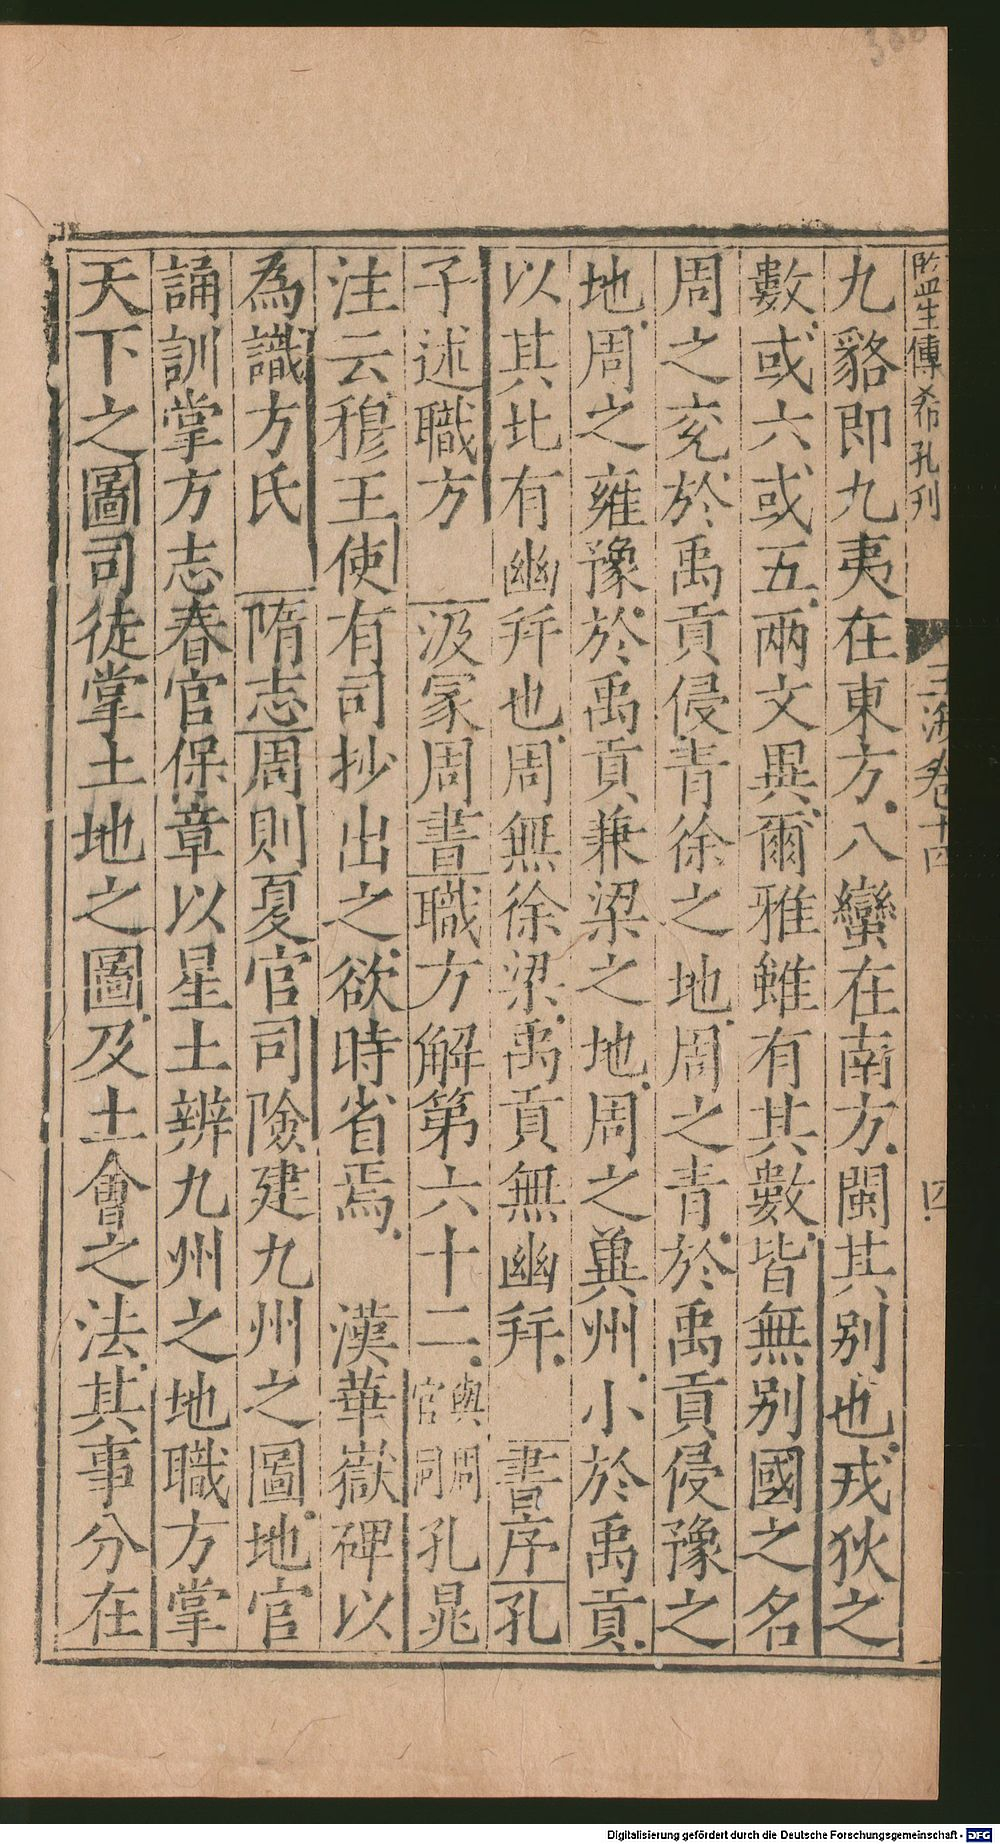 監生傅希孔刊
玉海卷十四
四
九貉即九夷在東方八蠻在南方閩其别也戎狄之
數或六或五兩文異爾雅雖有其數皆無别國之名
周之兖於禹貢侵青徐之地周之青於禹貢侵豫之
地周之雍豫於禹貢兼梁之地周之冀州小於禹貢
以其北有幽幷也周無徐梁禹貢無幽幷 書序孔
子述職方 汲冢周書職方解第六十二與周官同孔晁
注云穆王使有司抄出之欲時省焉 漢華嶽碑以
為識方氏 隋志周則夏官司險建九州之圖地官
誦訓掌方志春官保章以星土辨九州之地職方掌
天下之圖司徒掌土地之圖及土會之法其事分在
Digitalisierung gefördert durch die Deutsche Forschungsgemeinschaft - DFG